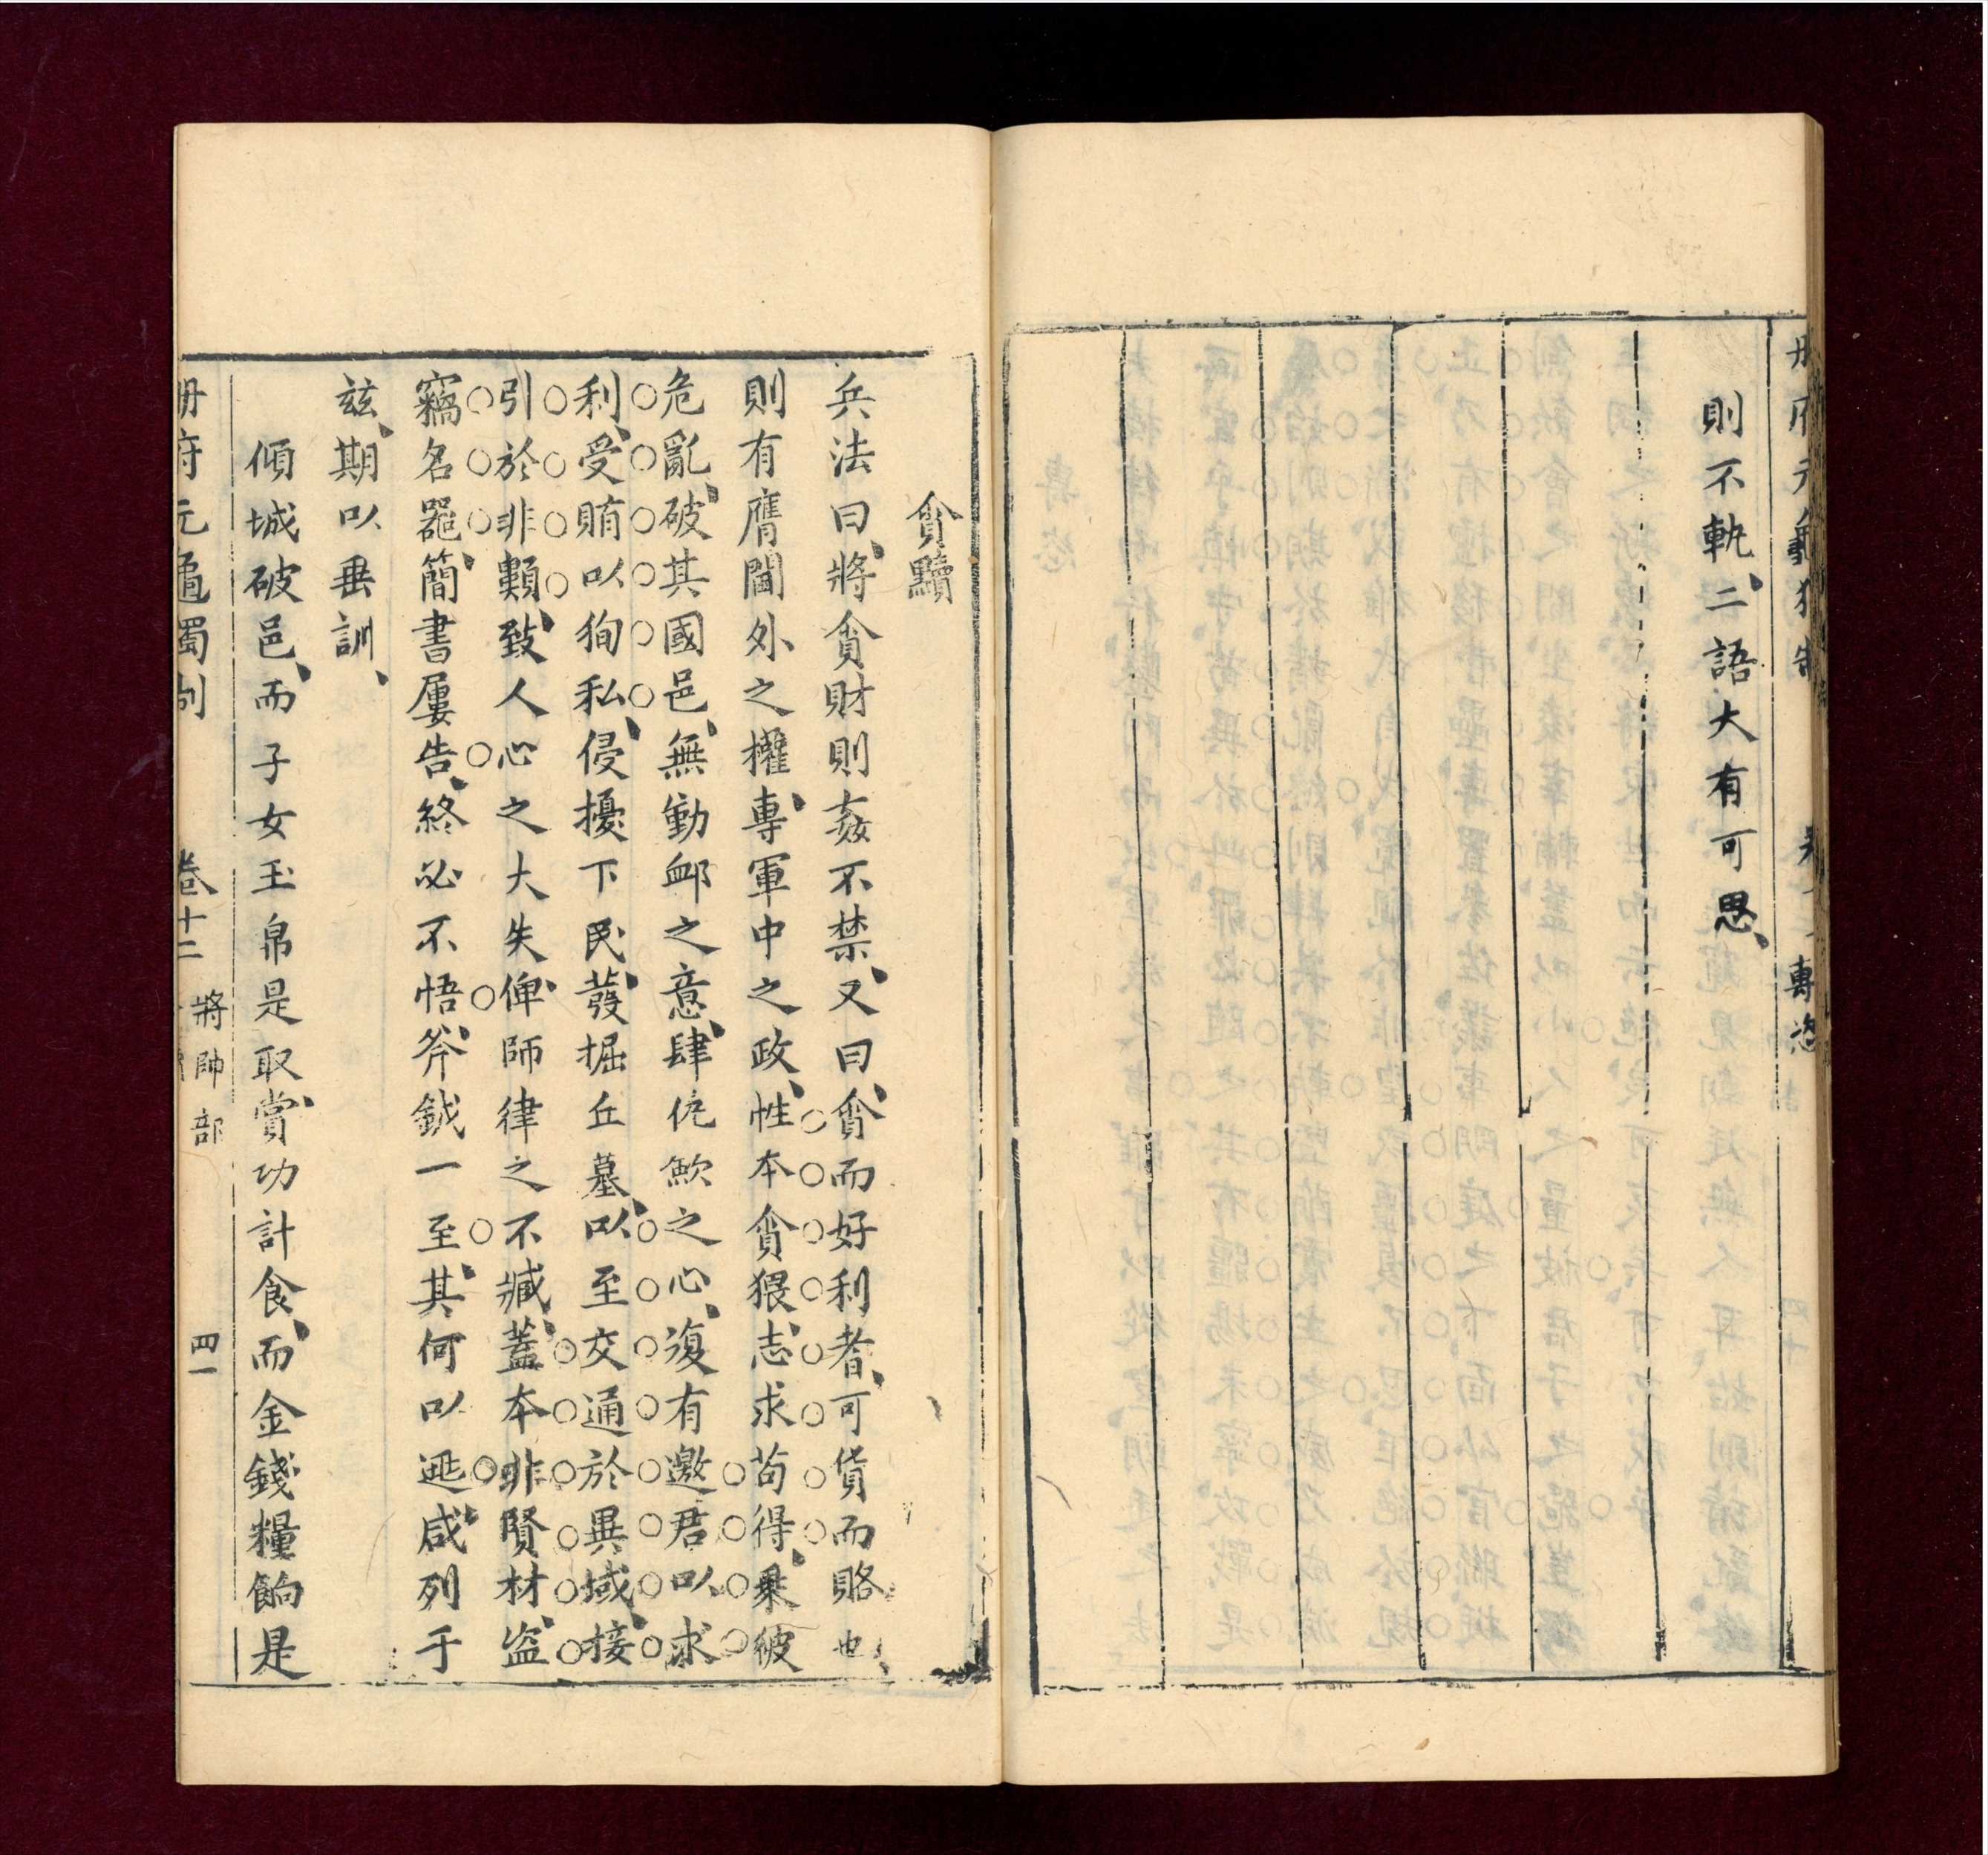 則不軌二語大有可思
專恣
貪黷
兵法曰將貪財則姦不禁又曰貪而好利者可貨而賂也
則有膺閫外之權專軍中之政性本貪猥志求茍得乗彼
危亂破其國邑無勤䘏之意肆仡歛之心復有邀君以求
利受賄以狥私侵擾下民發掘丘墓以至交通於異域接
引於非類致人心之大失俾師律之不臧蓋本非賢材盜
竊名器簡書屢告終必不悟斧鉞一至其何以逃咸列于
茲期以垂訓
傾城破邑而子女玉帛是取賞功計食而金錢糧餉是
册府元龜獨制
卷十二
將帥部
四一